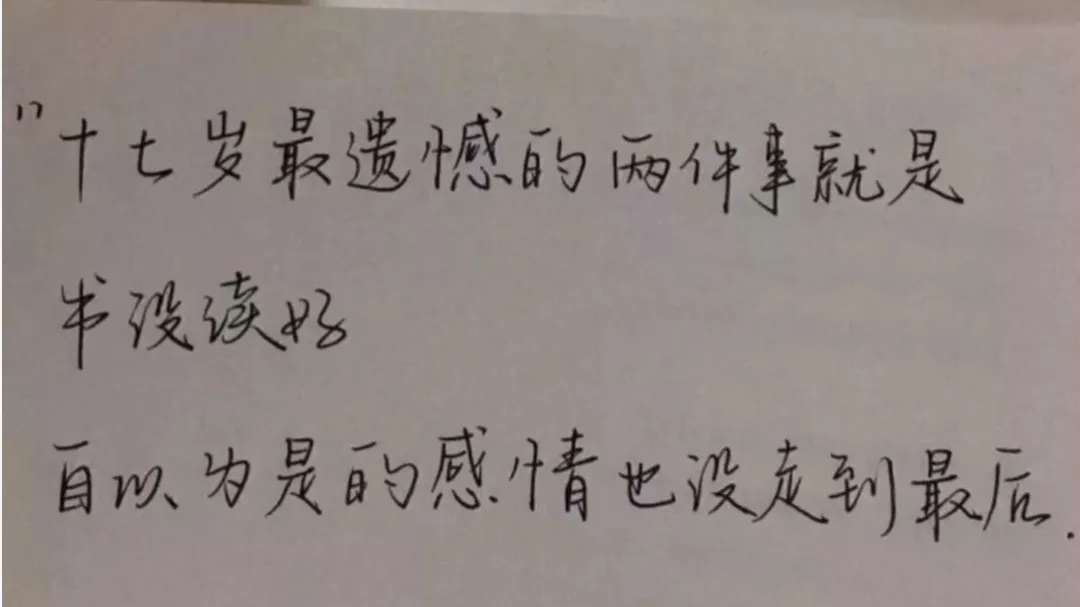 "十七岁最遗憾的两件事就是
书没读好
自以为是的感情也没走到最后.